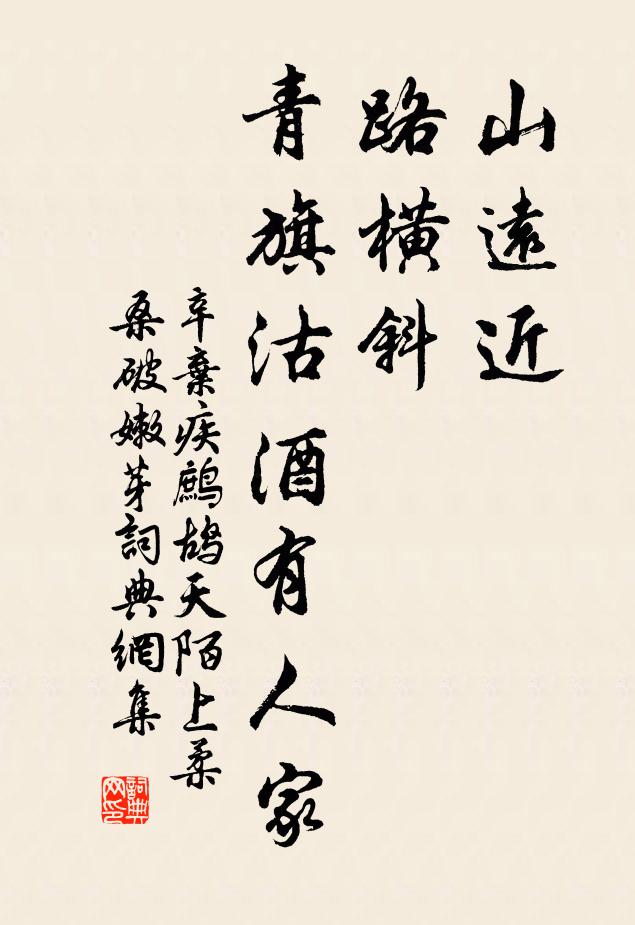 山遠近
路橫斜
青旗沽酒有人家
辛棄疾鷓鴣天陌上柔
桑破嫩芽詞典網集
詞典
网印